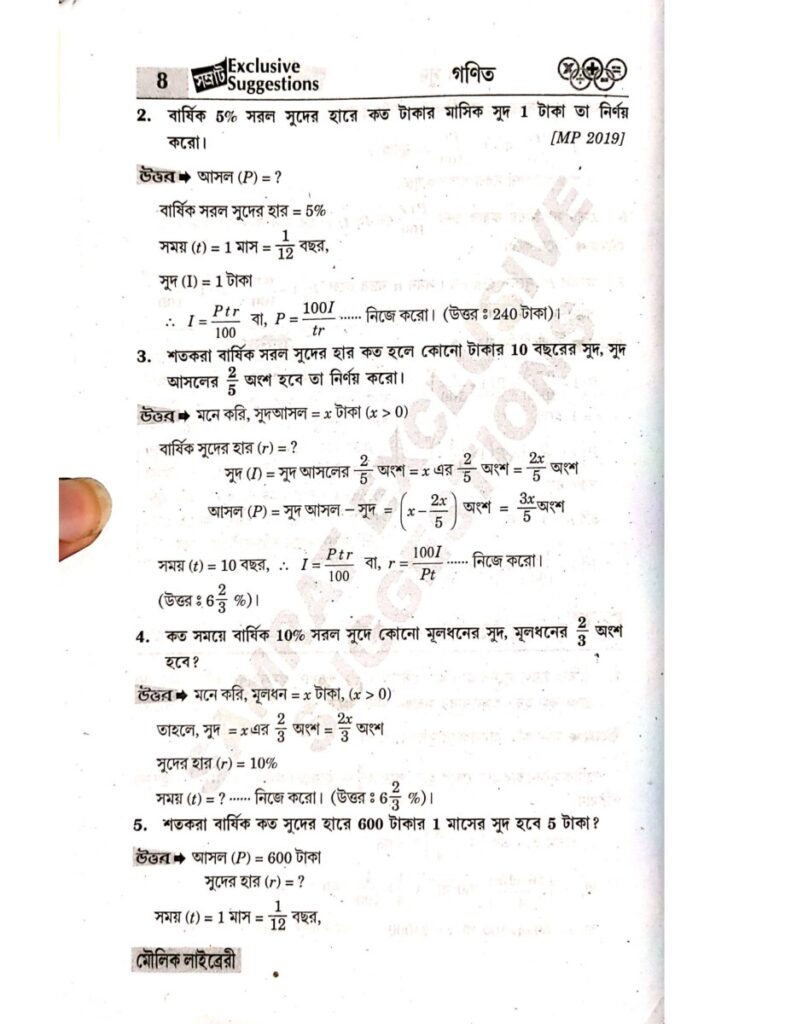 8 সম্রাট Exclusive Suggestions গণিত
2. বার্ষিক 5% সরল সুদের হারে কত টাকার মাসিক সুদ 1 টাকা তা নির্ণয়
করো। [MP 2019]
উত্তর ➡ আসল (P) = ?
বার্ষিক সরল সুদের হার = 5%
সময় (t) = 1 মাস = 1/12 বছর,
সুদ (I) = 1 টাকা
∴ I = Ptr/100 বা, P = 100I/tr ...... নিজে করো। (উত্তর ঃ 240 টাকা)।
3. শতকরা বার্ষিক সরল সুদের হার কত হলে কোনো টাকার 10 বছরের সুদ, সুদ
আসলের 2/5 অংশ হবে তা নির্ণয় করো।
উত্তর ➡ মনে করি, সুদআসল = x টাকা (x > 0)
বার্ষিক সুদের হার (r) = ?
সুদ (I) = সুদ আসলের 2/5 অংশ = x এর 2/5 অংশ = 2x/5 অংশ
আসল (P) = সুদ আসল – সুদ = (x – 2x/5) অংশ = 3x/5 অংশ
সময় (t) = 10 বছর, ∴ I = Ptr/100 বা, r = 100I/Pt ...... নিজে করো।
(উত্তর ঃ 6 2/3 %)।
4. কত সময়ে বার্ষিক 10% সরল সুদে কোনো মূলধনের সুদ, মূলধনের 2/3 অংশ
হবে?
উত্তর ➡ মনে করি, মূলধন = x টাকা, (x > 0)
তাহলে, সুদ = x এর 2/3 অংশ = 2x/3 অংশ
সুদের হার (r) = 10%
সময় (t) = ? ...... নিজে করো। (উত্তর ঃ 6 2/3 %)।
5. শতকরা বার্ষিক কত সুদের হারে 600 টাকার 1 মাসের সুদ হবে 5 টাকা?
উত্তর ➡ আসল (P) = 600 টাকা
সুদের হার (r) = ?
সময় (t) = 1 মাস = 1/12 বছর,
মৌলিক লাইব্রেরী
SAMRAT EXCLUSIVE
SUGGESTIONS